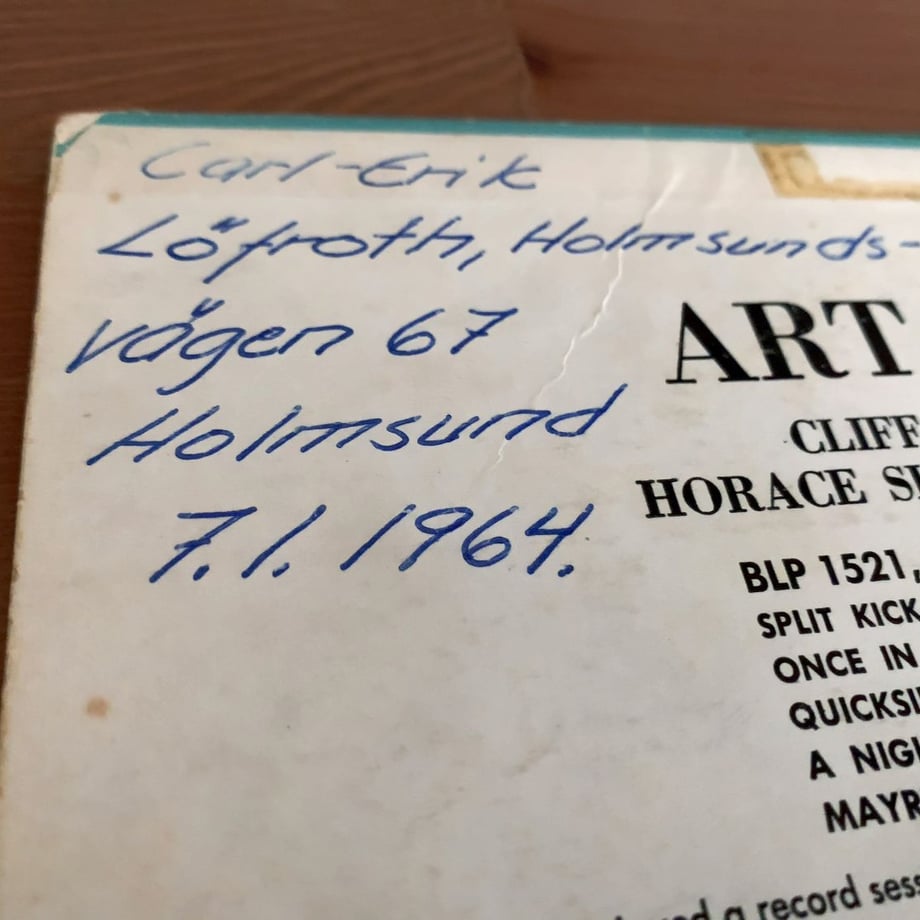 Carl-Erik
Löfroth, Holmsunds-
vägen 67
Holmsund
7.1. 1964.
ART
CLIFF
HORACE
BLP 1521,
SPLIT KICK
ONCE IN
QUICKSI
A NIG
MAYR
a record sess